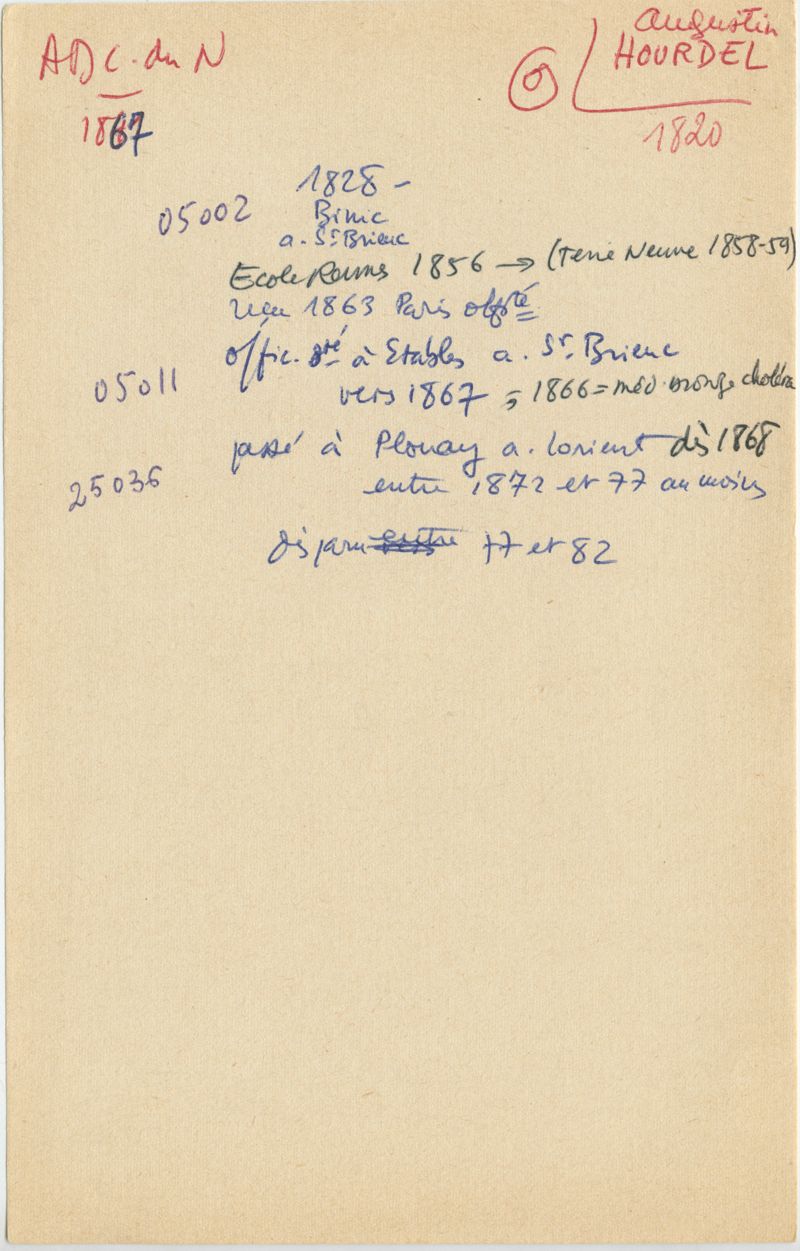 ADC. du N
Augustin
HOURDEL
1867
1820
1828 -
05002
Binic
a. St Brieuc
Ecole Rennes 1856 → (Terre Neuve 1858-59)
reçu 1863 Paris offté
offic. sté à Etables a. St. Brieuc
05011
vers 1867 ; 1866 = méd. choléra
passé à Plouay a. Lorient dès 1868
25036
entre 1872 et 77 au moins
disparu entre 77 et 82